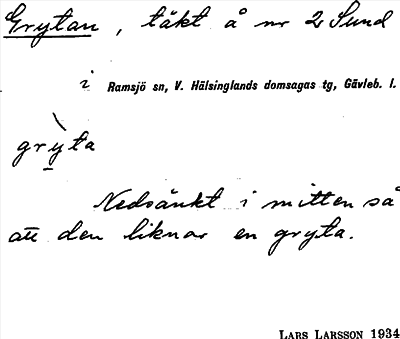 Grytan, täkt å nr 2 Sund
i Ramsjö sn, V. Hälsinglands domsagas tg, Gävleb. l.
gryta
Nedsänkt i mitten så
att den liknar en gryta.
LARS LARSSON 1934